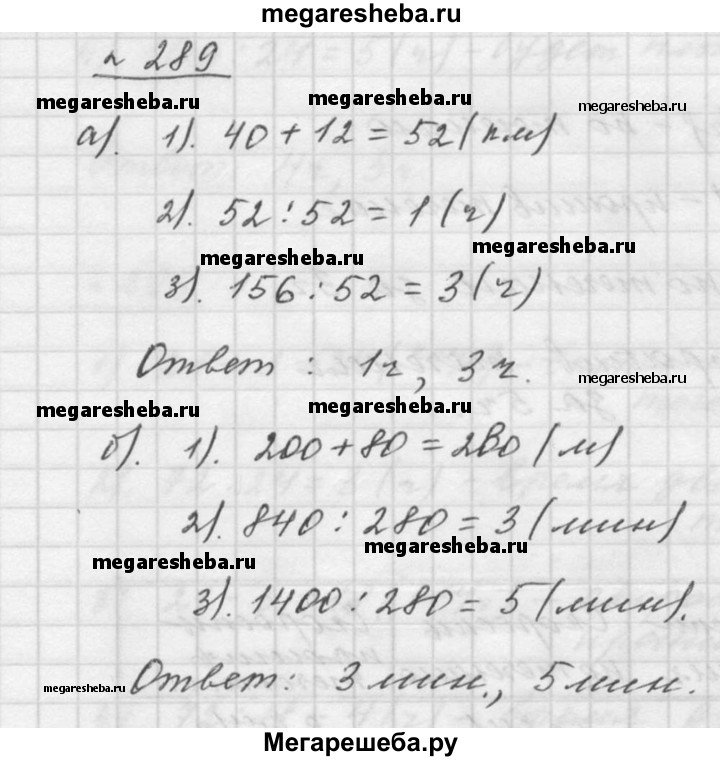 megaresheba.ru
№ 289
megaresheba.ru megaresheba.ru megaresheba.ru
а). 1). 40 + 12 = 52 (км)
2). 52 : 52 = 1 (ч)
megaresheba.ru megaresheba.ru
3). 156 : 52 = 3 (ч)
Ответ : 1ч, 3ч.
megaresheba.ru megaresheba.ru megaresheba.ru
б). 1). 200 + 80 = 280 (м)
2). 840 : 280 = 3 (мин)
megaresheba.ru megaresheba.ru
3). 1400 : 280 = 5 (мин).
megaresheba.ru Ответ: 3 мин., 5 мин.
Мегарешеба.ру